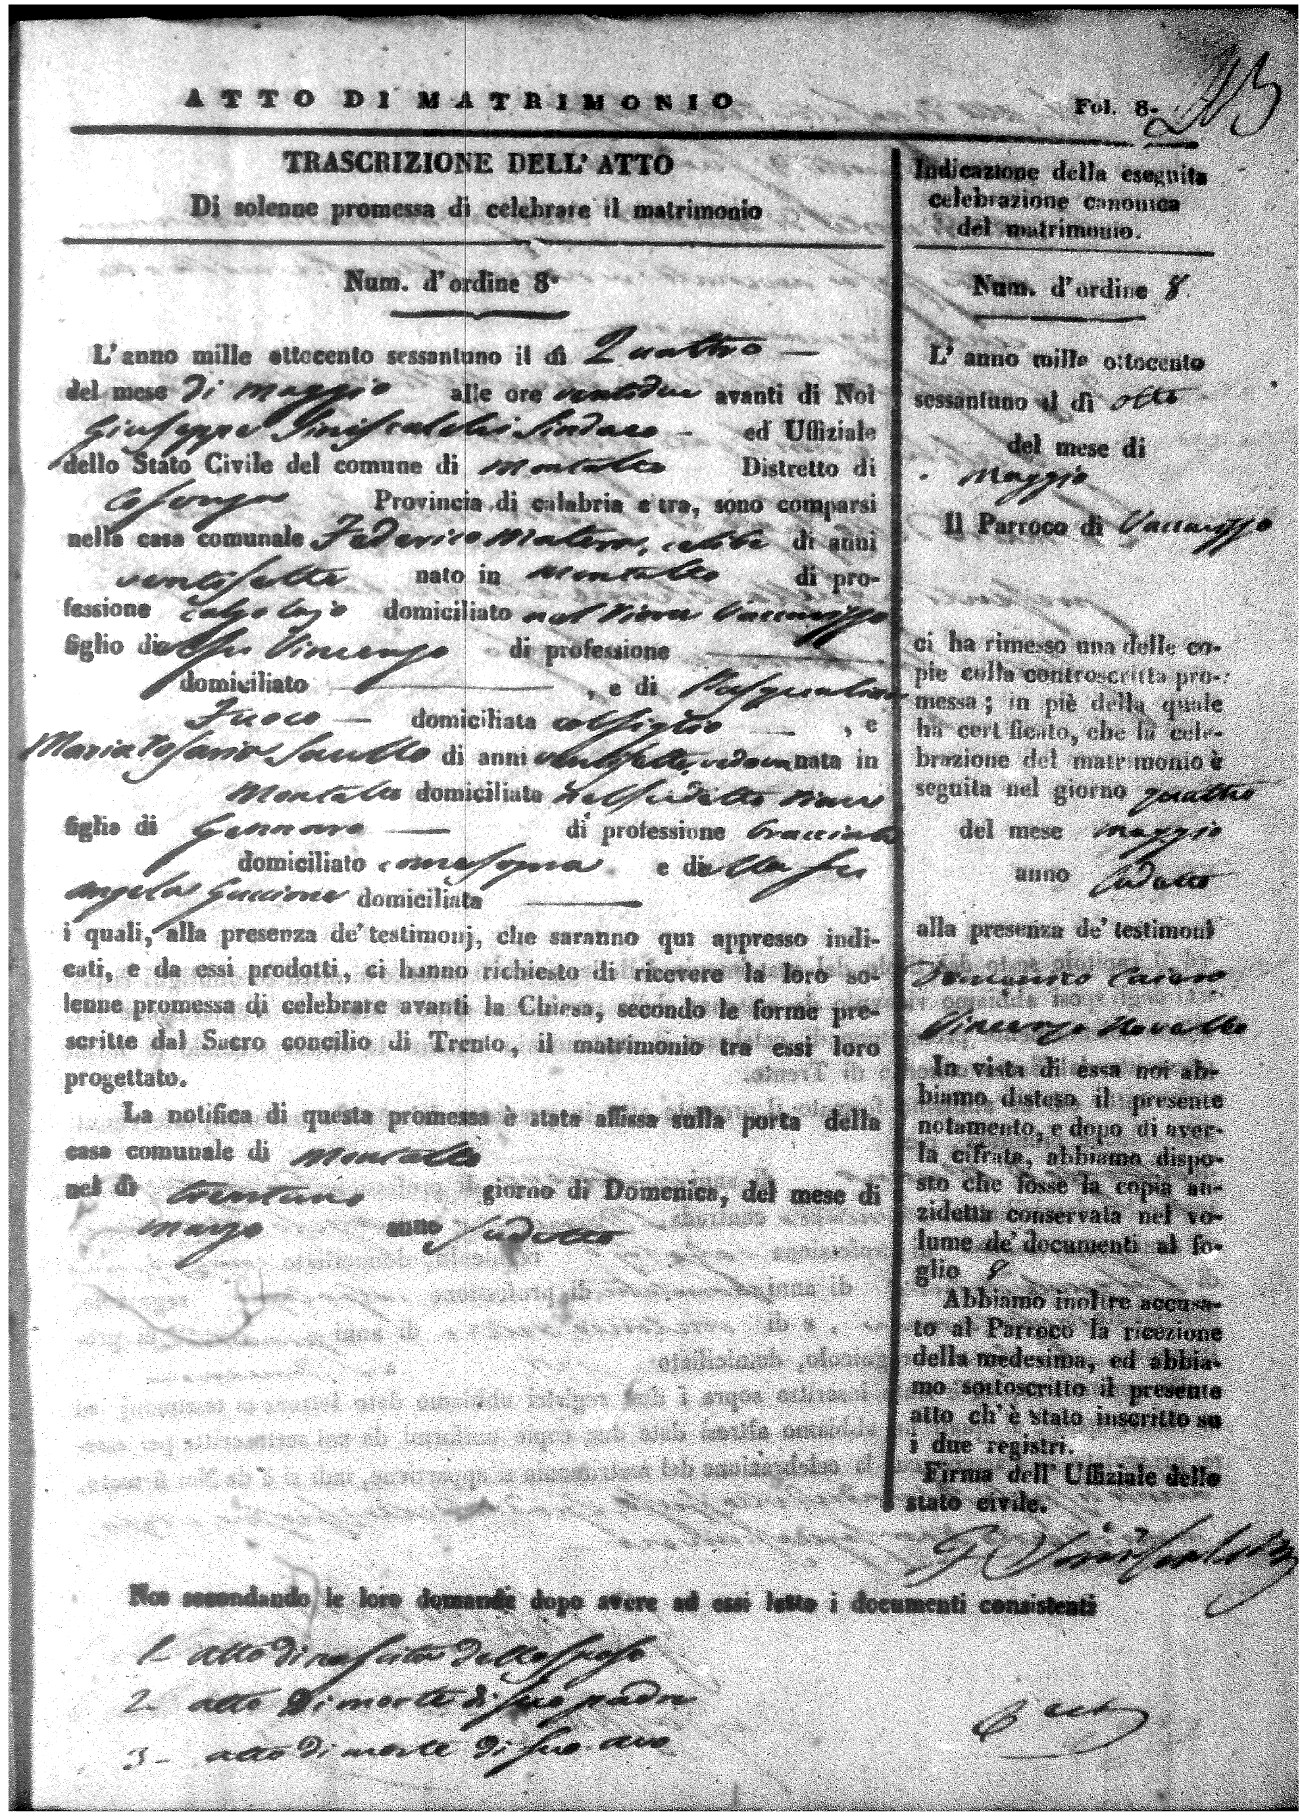 ATTO DI MATRIMONIO
Fol. 8.
TRASCRIZIONE DELL' ATTO
Di solenne promessa di celebrare il matrimonio
Num. d'ordine 8.
L'anno mille ottocento sessantuno il dì Quattro
del mese di maggio alle ore ventidue avanti di Noi
Giuseppe Siniscalchi Sindaco ed Uffiziale
dello Stato Civile del comune di Montalto Distretto di
Cosenza Provincia di calabria citra, sono comparsi
nella casa comunale Federico celibe di anni
ventisette nato in Montalto di pro-
fessione calzolajo domiciliato nel Vaccarizzo
figlio del fu Vincenzo di professione
domiciliato , e di Pasqualina
Fuoco domiciliata col figlio , e
Maria Rosaria di anni ventisette, vedova nata in
Montalto domiciliata nel sudetto
figlia di Gennaro di professione bracciale
domiciliato come sopra e della fu
Angela Guccione domiciliata
i quali, alla presenza de' testimonj, che saranno qui appresso indi-
cati, e da essi prodotti, ci hanno richiesto di ricevere la loro so-
lenne promessa di celebrare avanti la Chiesa, secondo le forme pre-
scritte dal Sacro concilio di Trento, il matrimonio tra essi loro
progettato.
La notifica di questa promessa è stata affissa sulla porta della
casa comunale di Montalto
nel dì trentuno giorno di Domenica, del mese di
marzo anno sudetto
Indicazione della eseguita
celebrazione canonica
del matrimonio.
Num. d'ordine 8.
L' anno mille ottocento
sessantuno il dì otto
del mese di
Maggio
Il Parroco di Vaccarizzo
ci ha rimesso una delle co-
pie colla controscritta pro-
messa; in piè della quale
ha certificato, che la cele-
brazione del matrimonio è
seguita nel giorno quattro
del mese maggio
anno sudetto
alla presenza de' testimoni
Domenico
Vincenzo Novello
In vista di essa noi ab-
biamo disteso il presente
notamento, e dopo di aver-
la cifrata, abbiamo dispo-
sto che fosse la copia an-
zidetta conservata nel vo-
lume de' documenti al fo-
glio 8
Abbiamo inoltre accusa-
to al Parroco la ricezione
della medesima, ed abbia-
mo sottoscritto il presente
atto ch'è stato inscritto su
i due registri.
Firma dell' Uffiziale dello
stato civile.
G Siniscalchi
Noi secondando le loro domande dopo avere ad essi letto i documenti consistenti
1. atto di nascita dello sposo
2. atto di morte di suo padre
3. atto di morte di suo avo